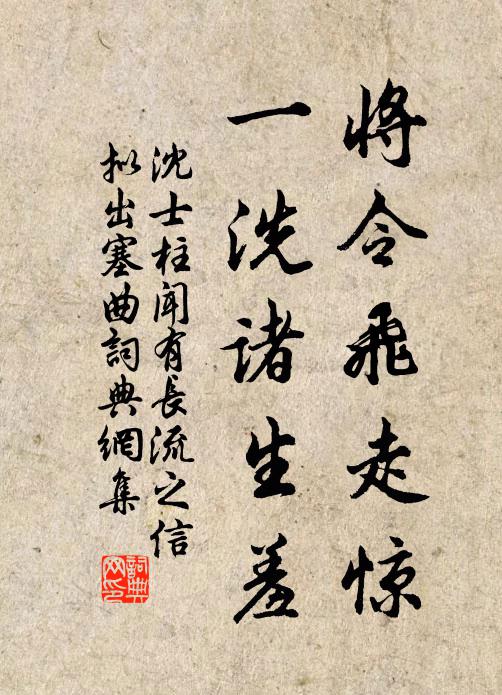 将令飛走惊
一洗諸生羞
沈士柱闻有長流之信
拟出塞曲詞典網集
詞典
网印